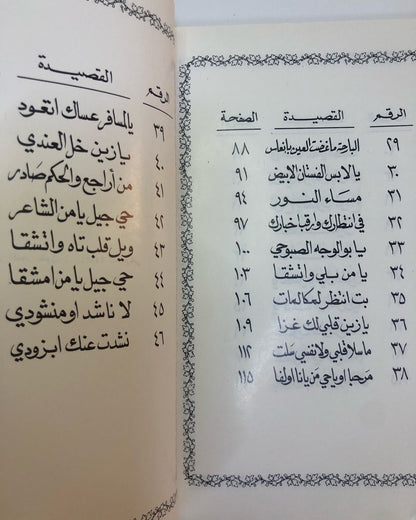 الرقم القصيدة الصفحة
٢٩ البارحة ما غضت العين يا نعاس ٨٨
٣٠ يا لابس الفستان الابيض ٩١
٣١ مساء النور ٩٤
٣٢ في انتظارك وارقب اخبارك ٩٧
٣٣ يا بو الوجه الصبوحي ١٠٠
٣٤ يا من بلي واتشقا ١٠٣
٣٥ بت انتظر لمكالمات ١٠٦
٣٦ يا زين قلبي لك غزا ١٠٩
٣٧ ما سلا قلبي ولا نفسي سلت ١١٢
٣٨ مرحبا او ياحي من يانا اولفا ١١٥
الرقم القصيدة
٣٩ يالمسافر عساك اتعود
٤٠ يا زين خل العندي
٤١ من أراجع والحكم صادر
٤٢ حي جيل يا من الشاعر
٤٣ ويل قلب تاه واتشقا
٤٤ حي جيل يا من امشقا
٤٥ لا ناشد او منشودي
٤٦ نشدت عنك ابزودي